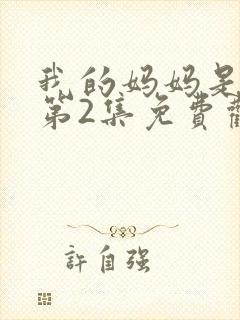 我的妈妈是
第2集免費
許自强